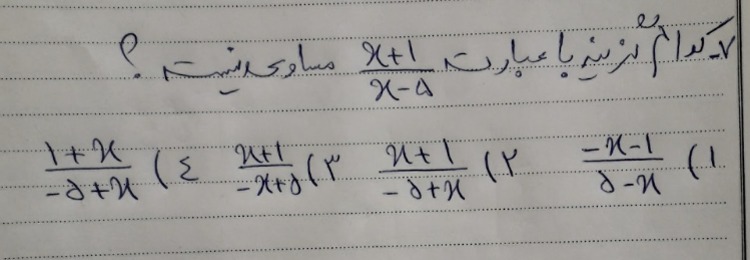 ۷- کدام گزینه با عبارت x+1/x-۵ مساوی نیست؟
۱) -x-1/۵-x ۲) x+1/-۵+x ۳) x+1/-x+۵ ٤) 1+x/-۵+x